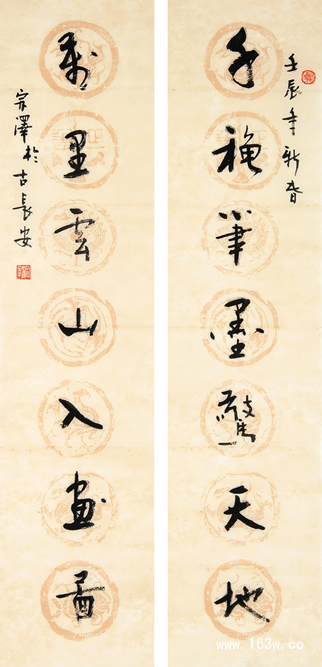 壬辰年新春
千穐筆墨驚天地
萬里雲山入畫啚
宗澤於古長安
www.163w.cn